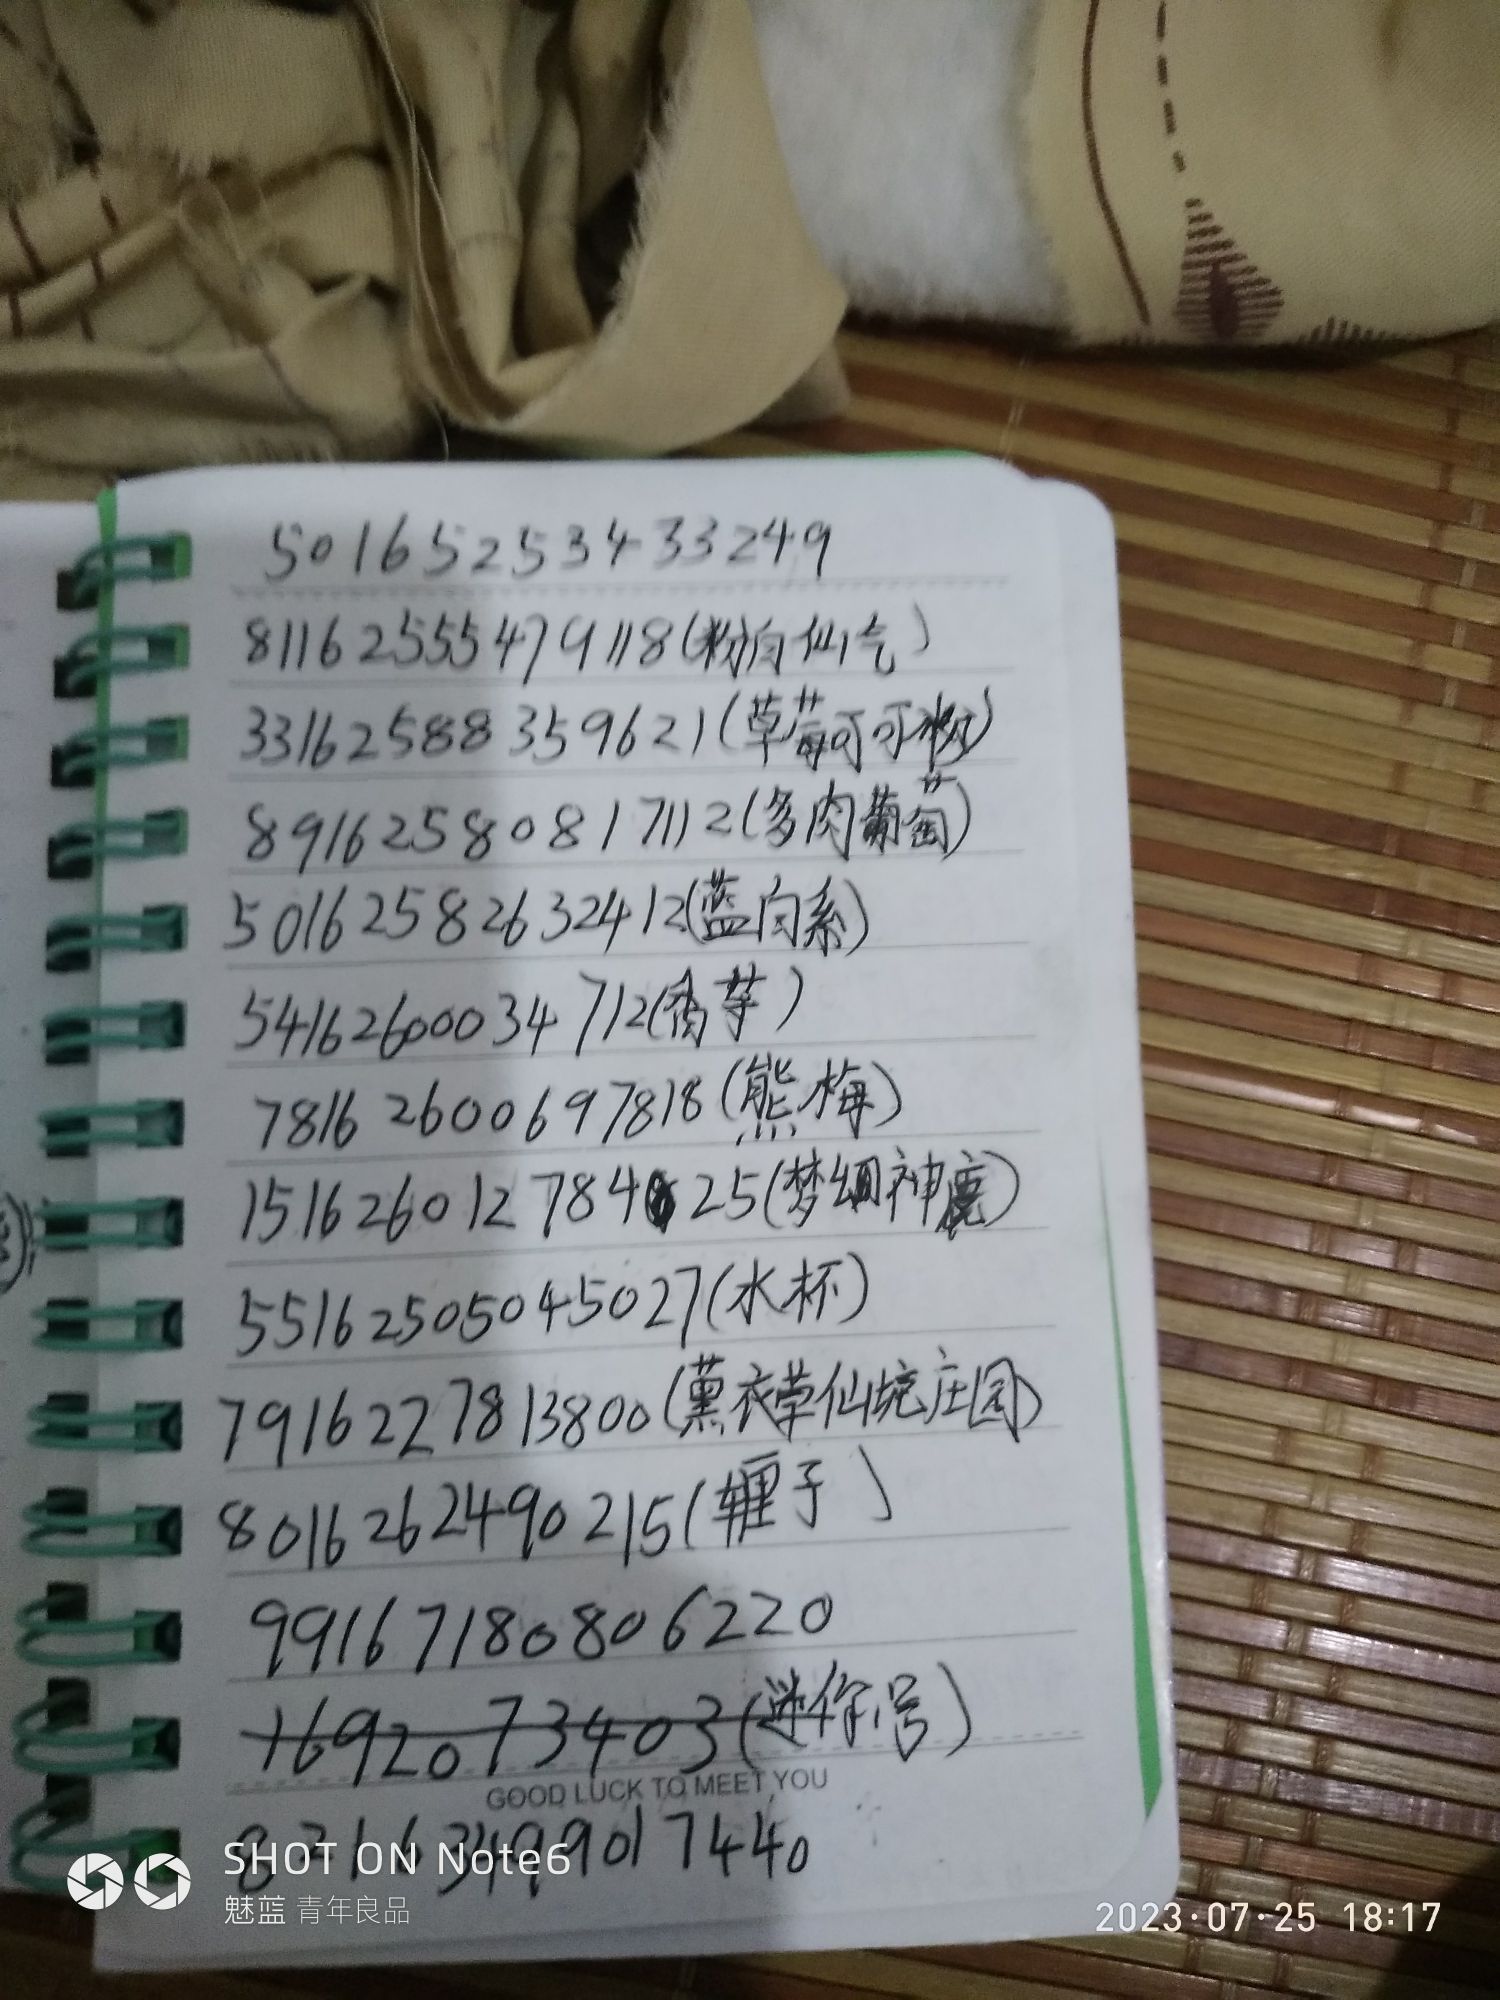 5016525343​3249
8116255547​9118(粉白仙气)
3316258835​9621(草莓可可粉)
8916258081​7112(多肉葡萄)
5016258263​2412(蓝白系)
5416260003​4712(香芋)
7816260069​7818(熊梅)
1516260127​84025(梦细神鹿)
5516250504​5027(水杯)
7916227781​3800(薰衣草仙境庄园)
8016262490​215(鞋子)
9916718080​6220
1692073403(迷你号)
GOOD LUCK TO MEET YOU
8216349901​7440
SHOT ON Note6
魅蓝 青年良品
2023·07·25 18:17